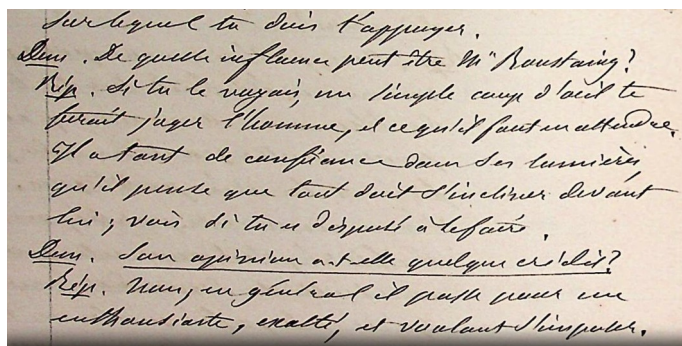 sur lequel tu dois t'appuyer.
Dem. De quelle influence peut être Mr Roustaing?
Rép. Si tu le voyais, un simple coup d'oeil te
ferait juger l'homme, et ce qu'il faut en attendre.
Il a tant de confiance dans ses lumières
qu'il pense que tout doit s'incliner devant
lui; vois si tu es disposé à le faire.
Dem. Son opinion a-t-elle quelque crédit?
Rép. Non, en général il passe pour un
enthousiaste, exalté, et voulant s'imposer.